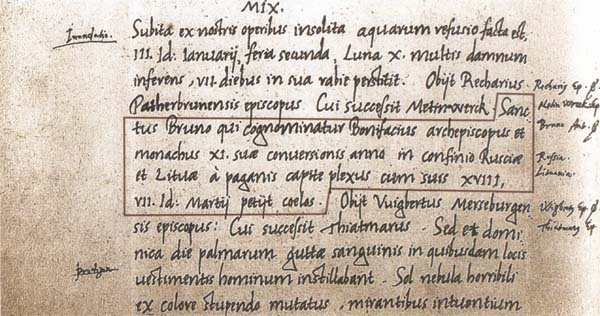 MIX.
Inundatio.
Subita ex nostris operibus insolita aquarum refusio facta est,
III. Id: Ianuarij, feria secunda, Luna X. multis damnum
inferens, VII. diebus in sua rabie perstitit. Obijt Recharius
Patherbrunensis episcopus Cui successit Meinwerck. Sanc
tus Bruno qui cognominatur Bonifacius archepiscopus et
monachus XI. suæ conversionis anno in confinio Rusciæ
et Lituæ à paganis capite plexus cum suis XVIII,
VII. Id: Martij petijt coelos. Obijt Vuigbertus Merseburgen
sis episcopus: Cui successit Thiatmarus. Sed et domi
nica die palmarum guttæ sanguinis in quibusdam locis
vestimentis hominum instillabant. Sol nebula horribili
ex colore stupendo mutatus, mirantibus intuentium
Rechary Ep.
Bruno
Russia.
Lituania.
Ep.
Thiatmary Ep.